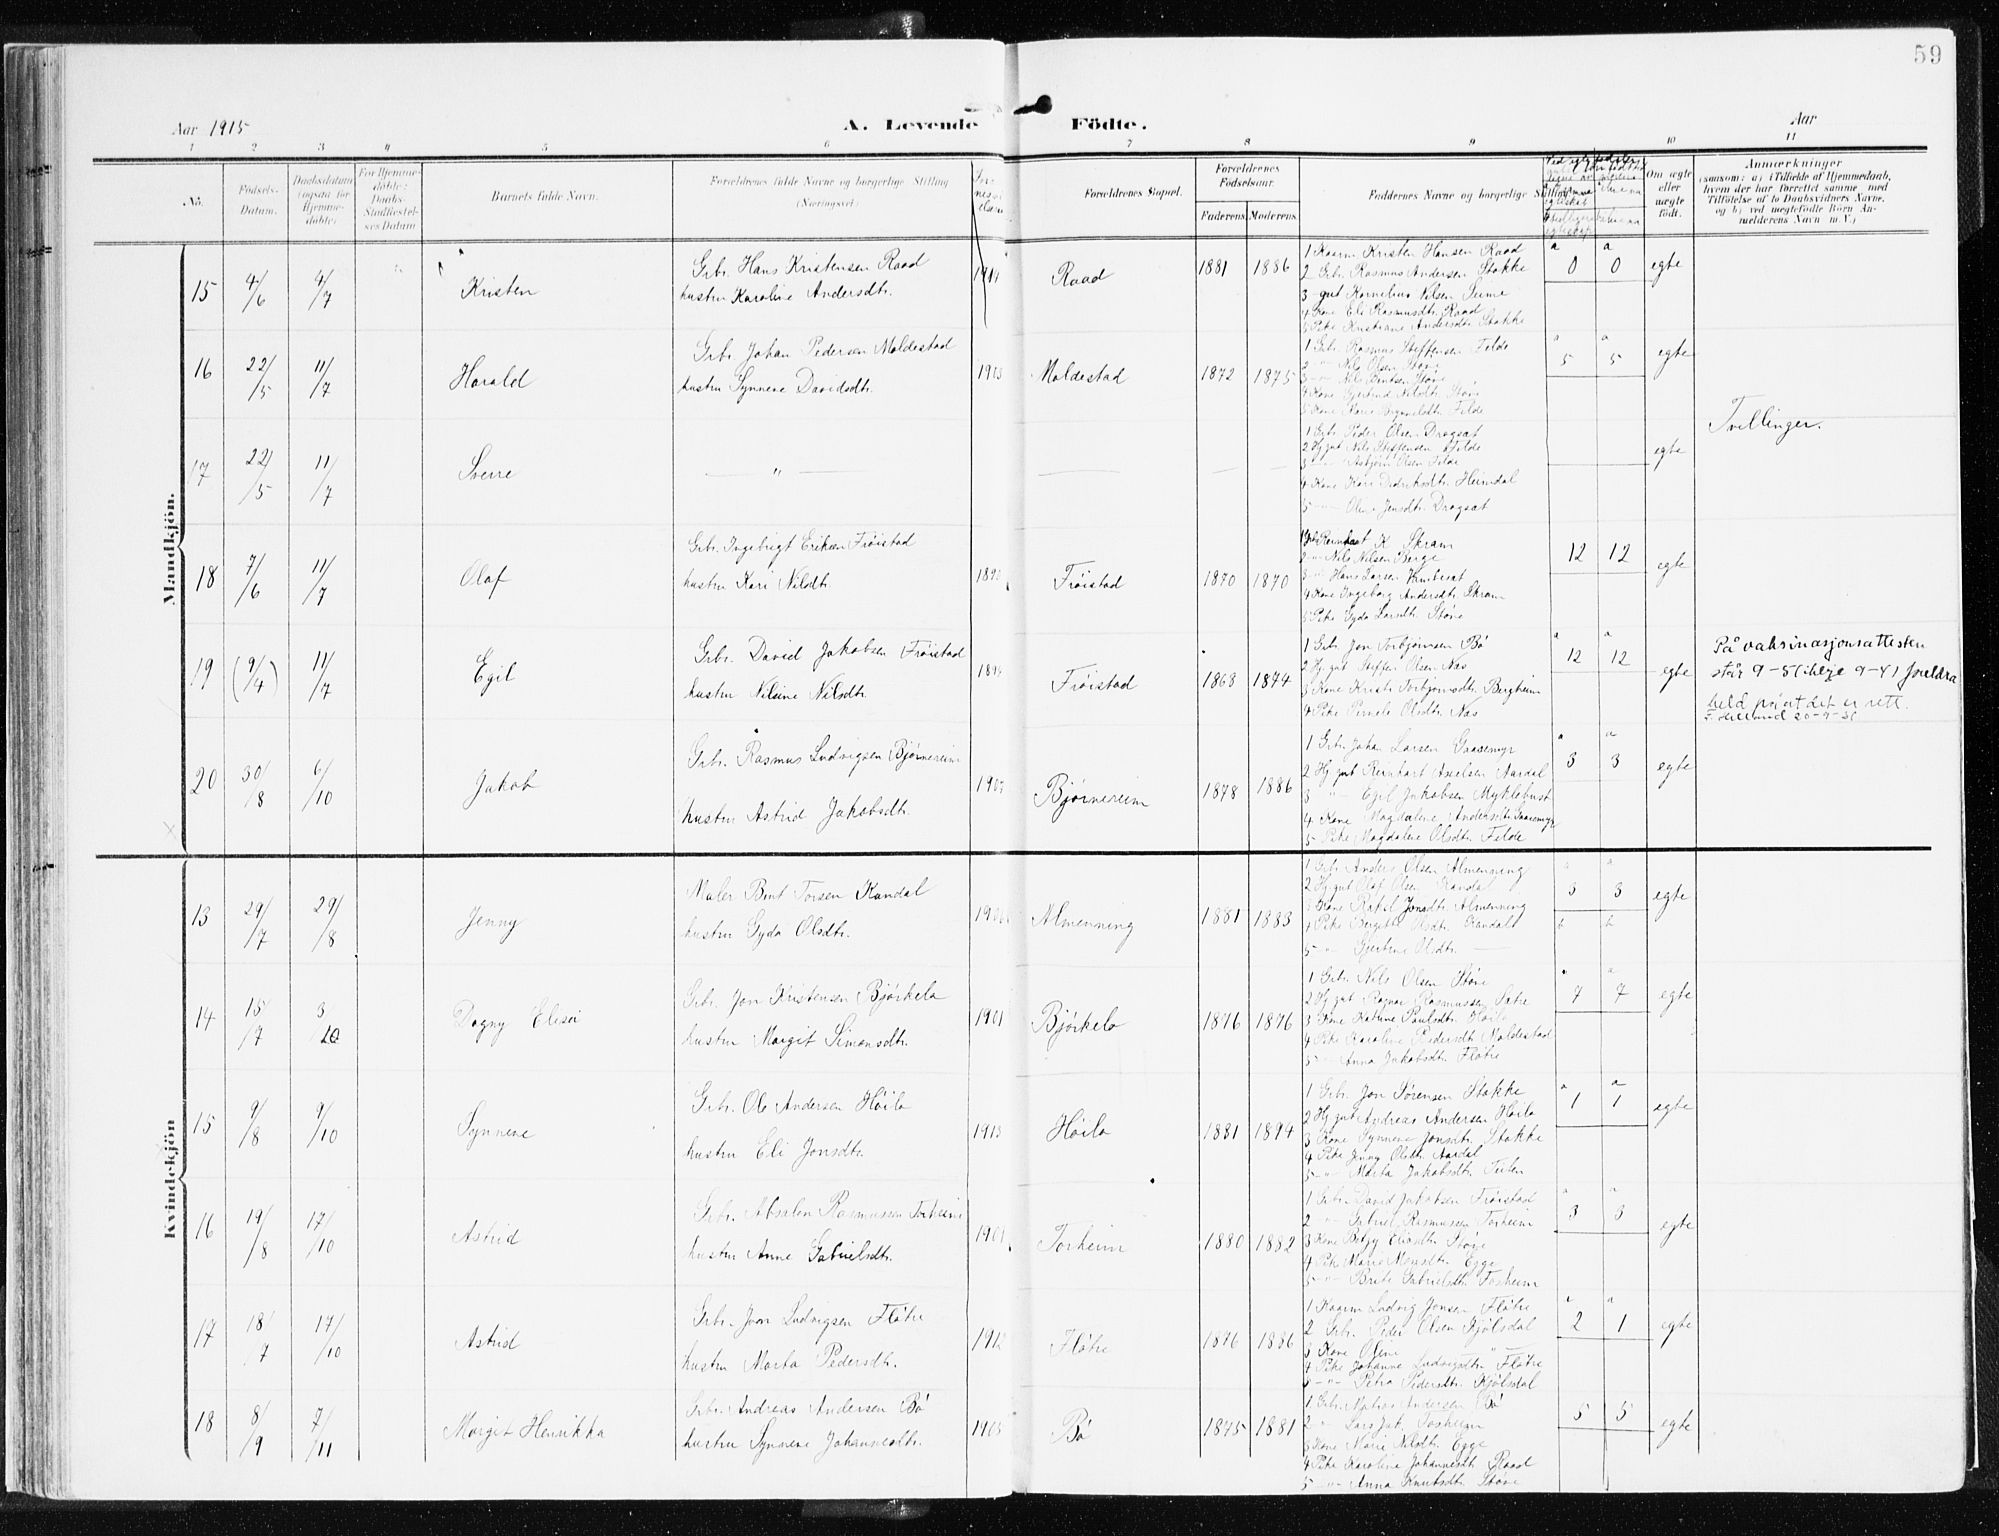 59
Aar 1915
A. Levende Födte.
Aar
1 2 3 4 5 6 7 8 9 10 11
No.
Fødsels-Datum.
Daabsdatum (ogsaa for Hjemmedøbte)
For Hjemmedøbte: Daabs-Stadfæstelses Datum
Barnets fulde Navn.
Forældrenes fulde Navne og borgerlige Stilling
(Næringsvei)
Forældrenes Bopæl.
Forældrenes Fødselsaar.
Faderens. Moderens.
Faddernes Navne og borgerlige Stilling
Om ægte eller uægte født.
Anmærkninger
(saasom: a) i Tilfælde af Hjemmedaab,
hvem der har forrettet samme, med
Tilføielse af to Daabsvidners Navne,
og b) ved uegtefødte Börn An-
melderens Navn m. V.)
Mandkjön.
15 4/6 4/7 Kristen
Grbr. Hans Kristensen Raad
hustru Karoline Andersdtr.
Raad 1881 1886
1 Kaarm Kristen Hansen Raad
2 Grbr. Rasmus Andersen Stokke
3 gut Kornelius Nilsen Seime
4 Kone Eli Rasmusdtr. Raad
5 Pike Kristiane Andersdtr. Stokke
a a
0 0 egte
16 22/5 11/7 Harald
Grbr. Johan Pedersen Moldestad
hustru Synneve Davidsdtr.
1913 Moldestad 1872 1875
1 Grbr. Rasmus Steffensen Felde
2 -"- Nils Olsen Støve
3 -"- Nils Bentsen Støve
4 Kone Gjertrud Nilsdtr. Støve
5 Kone Kari Brynildsdtr. Felde
a a
5 5 egte
Tvillinger.
17 22/5 11/7 Sverre
— " —
1 Grbr. Peder Olsen Dragsæt
2 Hj. gut Nils Steffensen Felde
3 -"- Asbjørn Olsen Felde
4 Kone Kari Didriksdtr. Heimdal
5 -"- Oline Jensdtr. Dragsæt
egte
18 7/6 11/7 Olaf
Grbr. Ingebrigt Eriksen Frøistad
hustru Kari Nilsdtr.
Frøistad 1870 1870
1 Grbr. Reinhart K Skram
2 -"- Nils Nilsen Berge
3 -"- Hans Larsen
4 Kone Ingeborg Andersdtr. Skram
5 Pike Gyda Larsdtr. Støve
12 12 egte
19 (9/4) 11/7 Egil
Grbr. David Jakobsen Frøistad
hustru Nilsine Nilsdtr.
Frøistad 1868 1874
1 Grbr. Jon Torbjørnsen Bø
2 Hj. gut Steffen Olsen Nos
3 Kone Kristi Torbjørnsdtr. Bergheim
4 Pike Pernele Olsdtr. Nos
a a
12 12 egte
På vaksinasjonsattesten
står 9-5 (ikkje 9-4) foreldra
held på at det er rett.
20 30/8 6/10 Jakob
Grbr. Rasmus Ludvigsen Bjørnereim
hustru Astrid Jakobsdtr.
Bjørnereim 1878 1886
1 Grbr. Johan Larsen Gaasemyr
2 Hj. gut Reinhart Axelsen Aardal
3 -"- Egil Jakobsen Myklebust
4 Kone Magdalene Andersdtr. Gaasemyr
5 Pike Magdalene Olsdtr. Felde
a a
3 3 egte
Kvindekjön
13 29/7 29/8 Jenny
Maler Bent Torsen Kandal
hustru Gyda Olsdtr.
Almenning 1881 1883
1 Grbr. Anders Olsen Almenning
2 Hj. gut Olaf Olsen Kandal
3 Kone Rakel Jonsdtr. Almenning
4 Pike Bergitte Olsdtr. Kandal
5 -"- Gjertine Olsdtr. —
a a
3 3 egte
b b
14 15/7 3/10 Dagny Elisa
Grbr. Jon Kristensen Bjørkelo
hustru Margit Simonsdtr.
1901 Bjørkelo 1876 1876
1 Grbr. Nils Olsen Støve
2 Hj. gut Ragnar Rasmussen Sætre
3 Kone Katrine Paulsdtr. Høilo
4 Pike Karoline Pedersdtr. Moldestad
5 -"- Anna Jakobsdtr. Fløtre
a a
7 7 egte
15 9/8 9/10 Synneve
Grbr. Ole Andersen Høilo
hustru Eli Jonsdtr.
1913 Høilo 1881 1894
1 Grbr. Jon Sørensen Stokke
2 Hj. gut Andreas Andersen Høilo
3 Kone Synneve Jonsdtr. Stokke
4 Pike Jenny Olsdtr. Aardal
5 -"- Marta Jakobsdtr. Tuten
a a
1 1 egte
16 19/8 17/10 Astrid
Grbr. Absalon Rasmussen Torheim
hustru Anne Gabrielsdtr.
1901 Torheim 1880 1882
1 Grbr. David Jakobsen Frøistad
2 -"- Gabriel Rasmussen Torheim
3 Kone Betzy Eliasdtr. Støve
4 Pike Marie Monsdtr. Egge
5 -"- Brite Gabrielsdtr. Torheim
a a
3 3 egte
17 18/7 17/10 Astrid
Grbr. Jon Ludvigsen Fløtre
hustru Marta Pedersdtr.
1912 Fløtre 1876 1886
1 Kaarm Ludvig Jonsen Fløtre
2 Grbr. Peder Olsen Kjølsdal
3 Kone Oline — " —
4 Pike Johanne Ludvigsdtr. Fløtre
5 -"- Petra Pedersdtr. Kjølsdal
a a
2 1 egte
18 8/9 7/11 Margit Henrikka
Grbr. Andreas Andersen Bø
hustru Synneve Johannesdtr.
1905 Bø 1875 1881
1 Grbr. Mathias Andersen Bø
2 -"- Lars Jak. Torheim
3 Kone Marie Nilsdtr. Egge
4 Pike Karoline Johannesdtr. Raad
5 -"- Anna Knutsdtr. Støve
5 5 egte